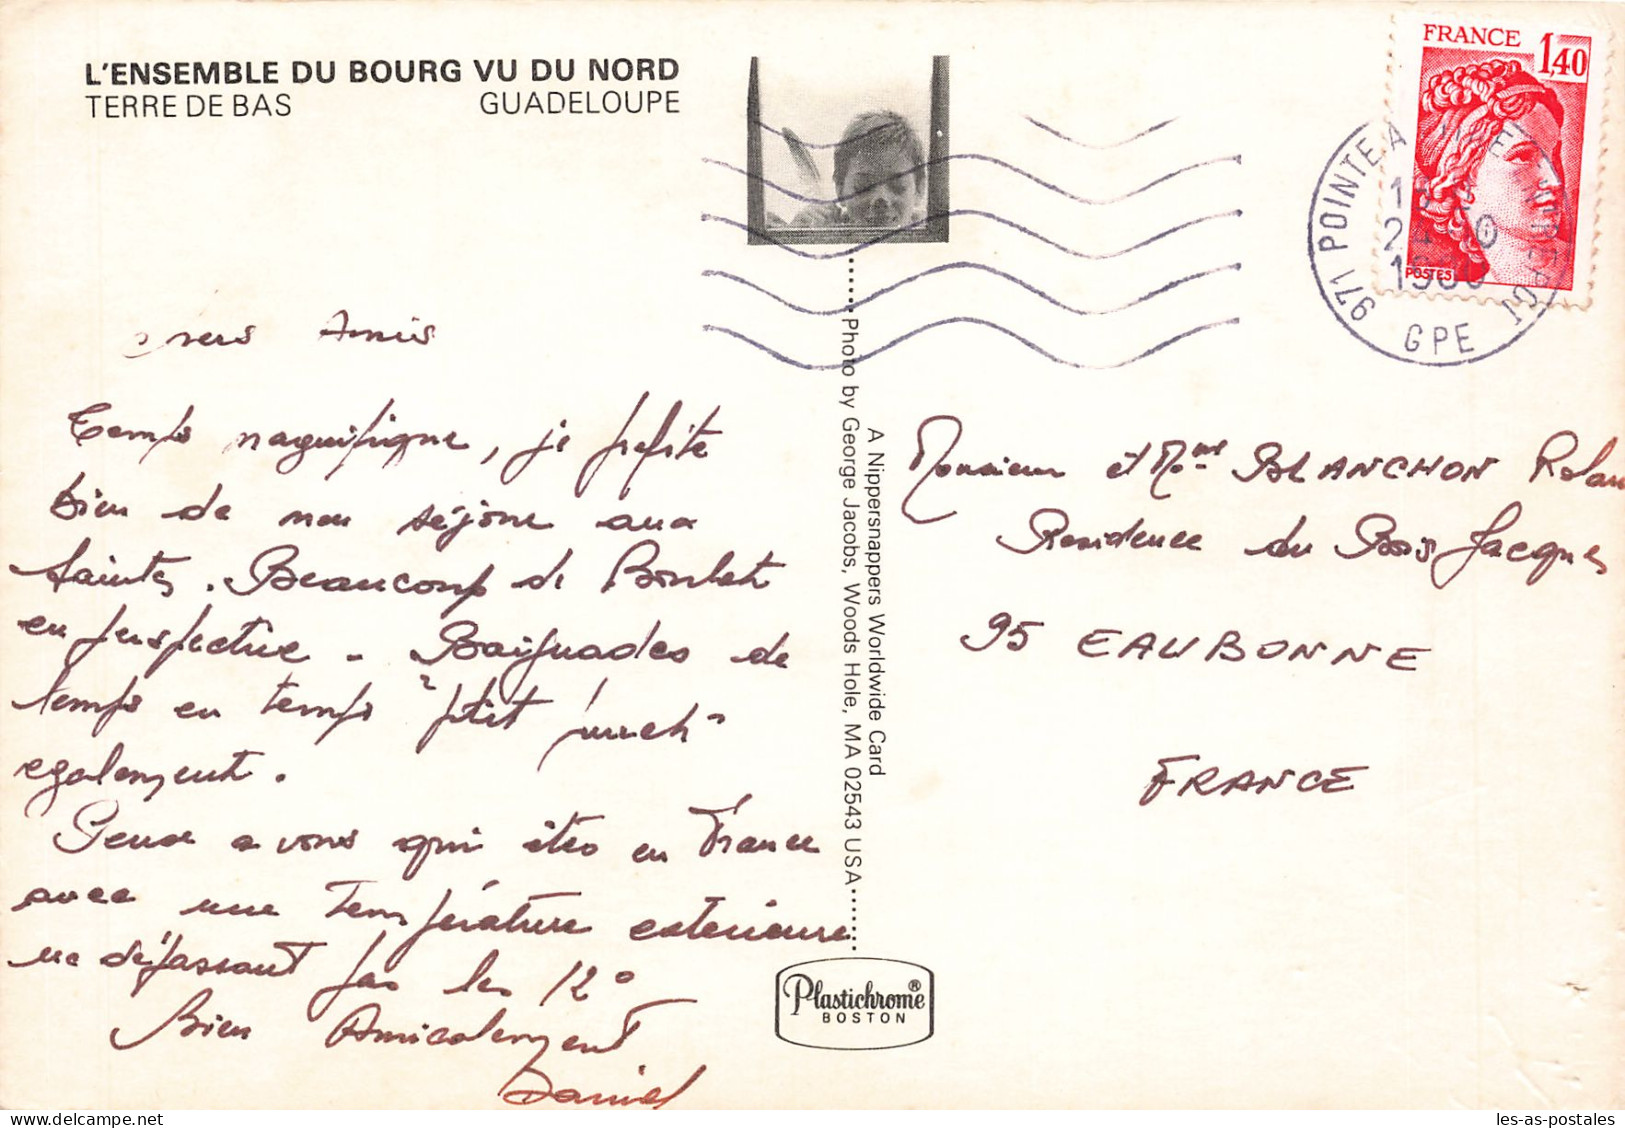 L'ENSEMBLE DU BOURG VU DU NORD
TERRE DE BAS GUADELOUPE
FRANCE 1,40
POSTES
971 POINTE A PITRE
GPE
Chers Amis
Temps magnifique, je profite
bien de mon séjour aux
Saintes. Beaucoup de
en perspective - Baignades de
temps en temps "ptit punch"
egalement.
Pense a vous qui êtes en France
avec une température exterieure
ne dépassant pas les 12°
Bien Amicalement
Daniel
Photo by George Jacobs, Woods Hole, MA 02543 USA
A Nippersnappers Worldwide Card
Plastichrome®
BOSTON
Monsieur et Mme BLANCHON Rolan
Residence du Bois Jacques
95 EAUBONNE
FRANCE
les-as-postales